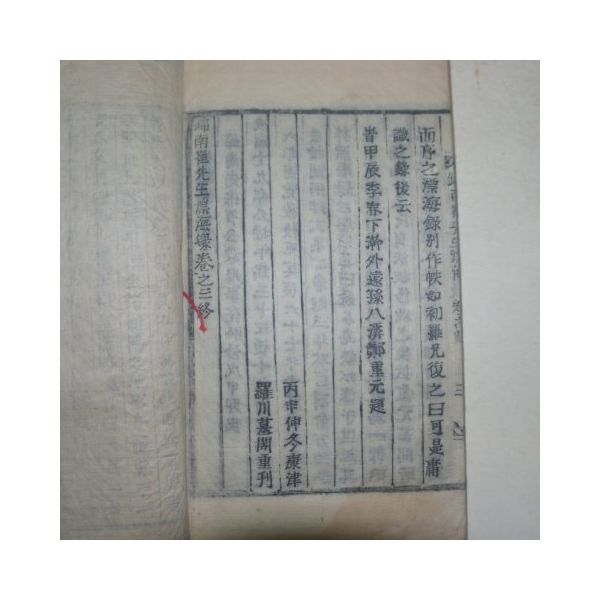 而序之漂海錄別作帙如初難兄復之曰可是庸
識之錄後云
皆甲辰季春下澣外遠孫八溪鄭重元題
丙申仲冬康津
羅川墓閣重刊
錦南崔先生漂海錄卷之三終